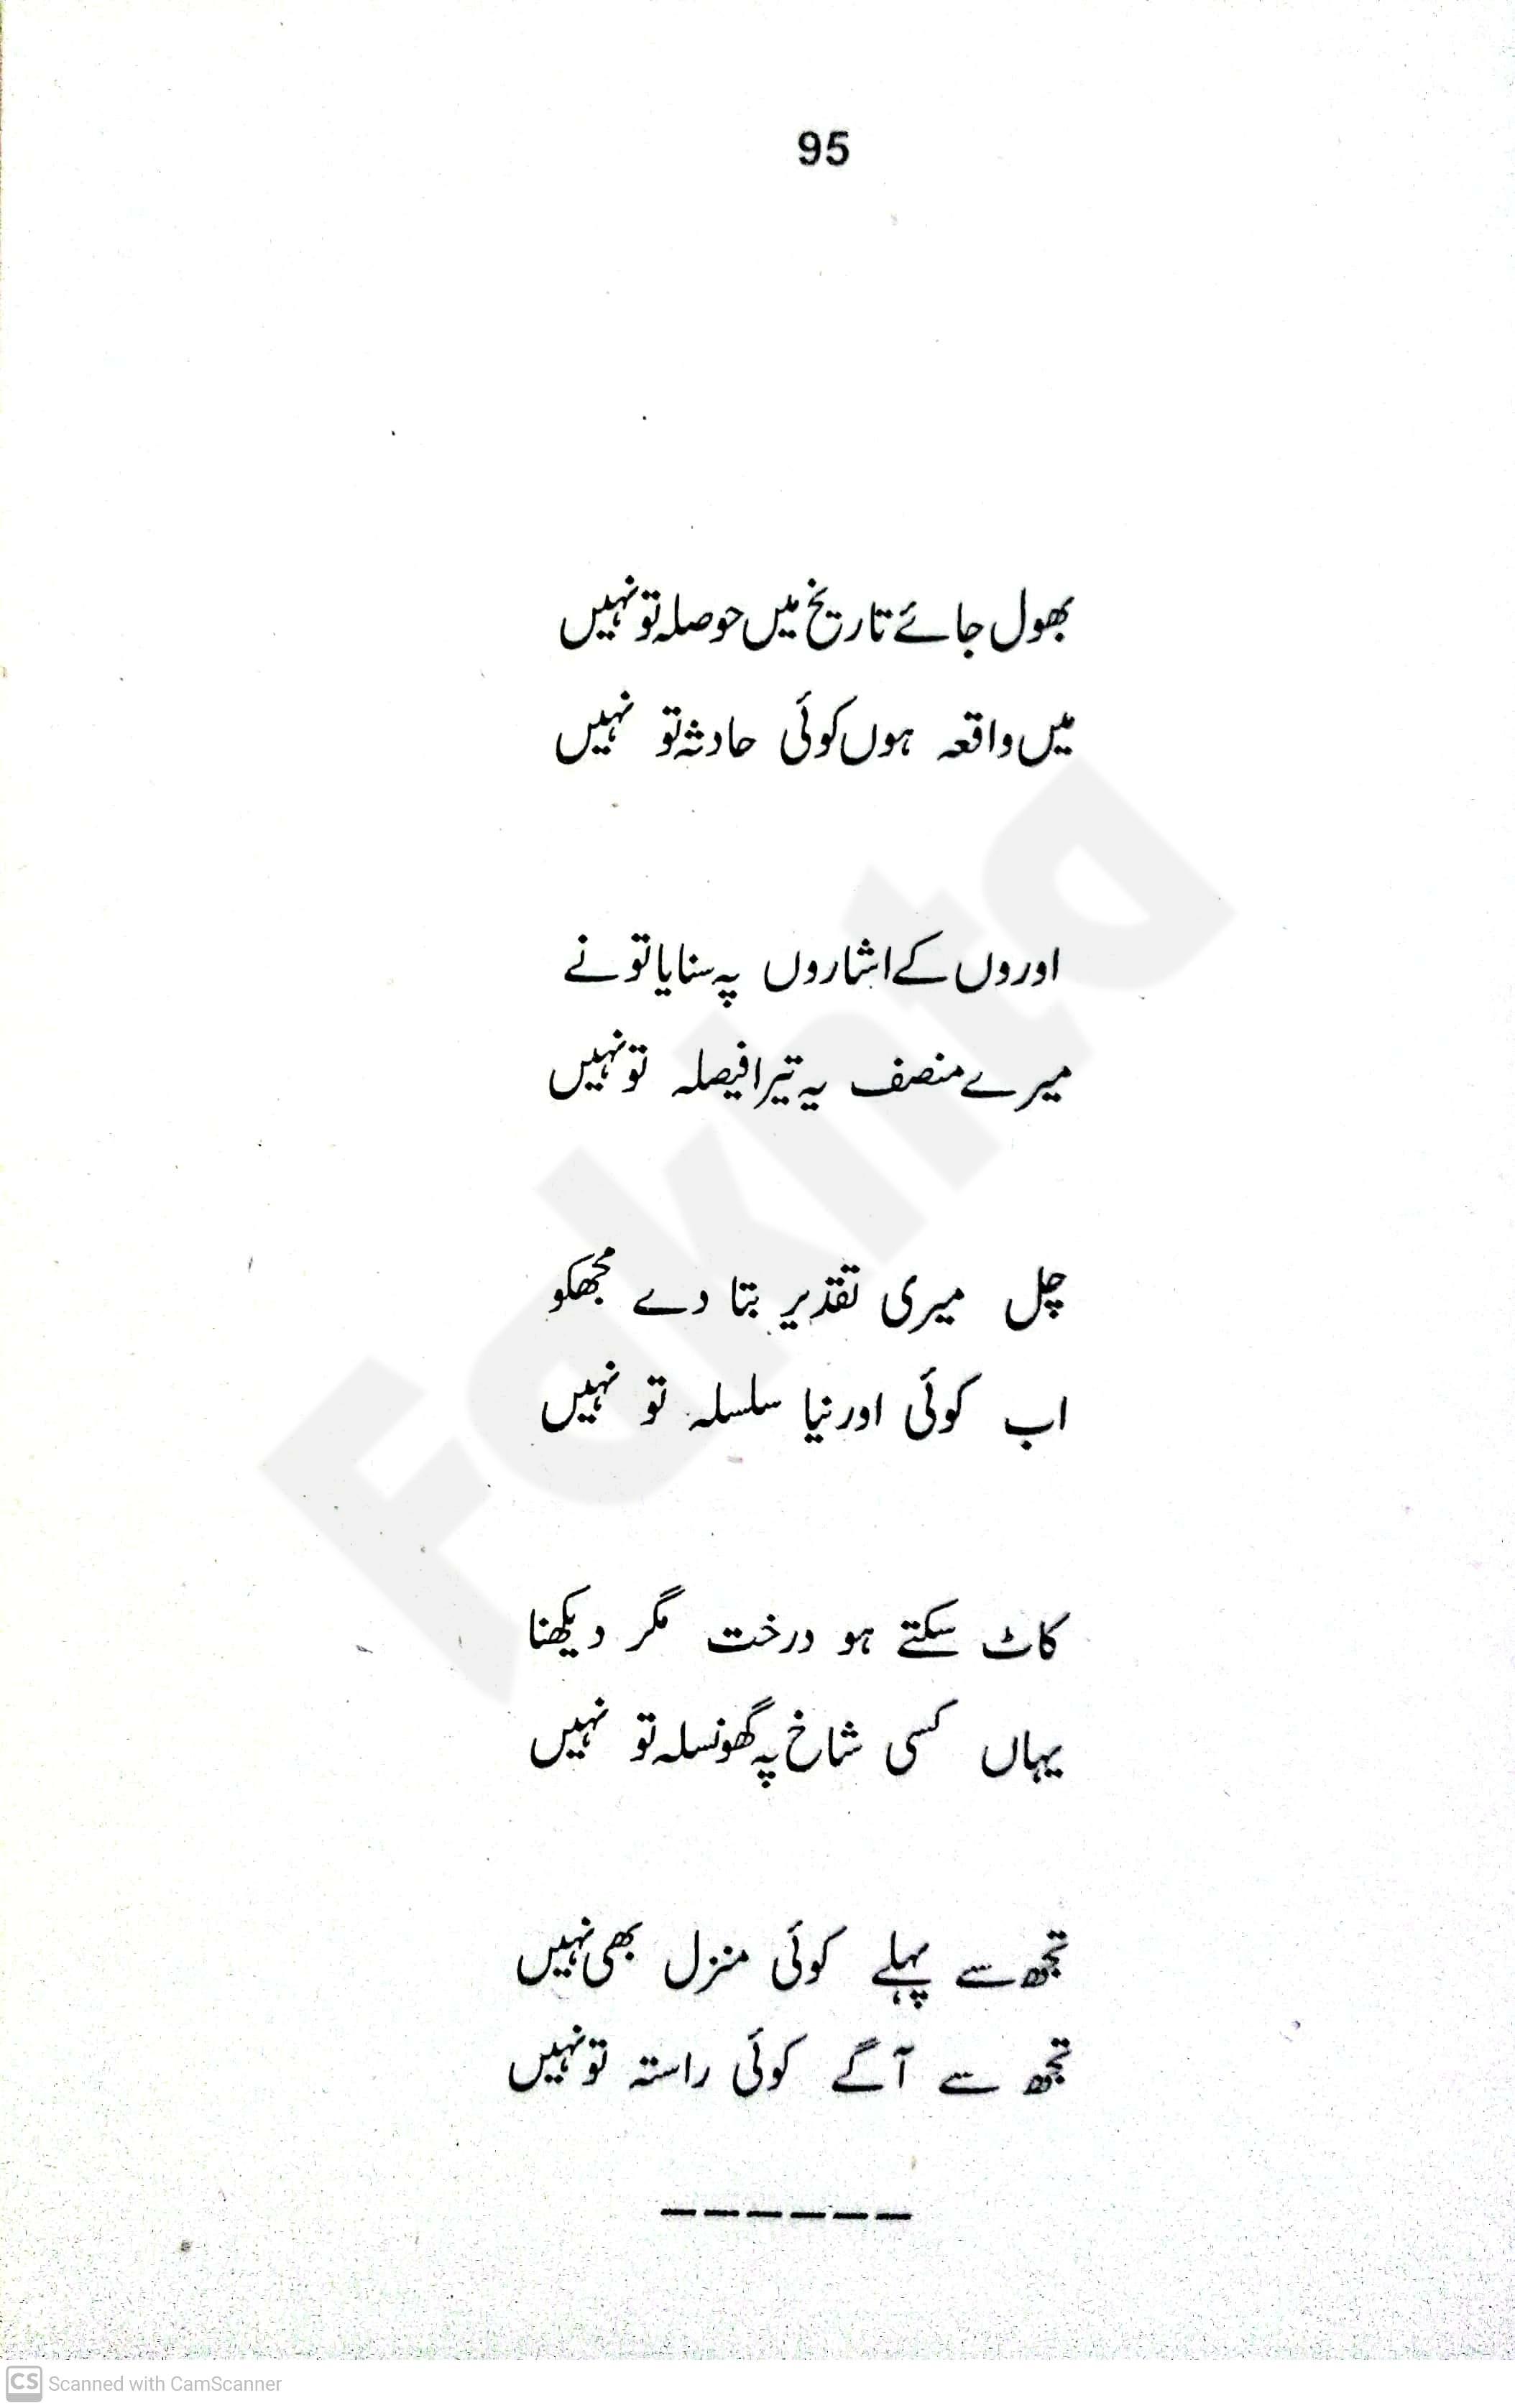 95
بھول جائے تاریخ میں حوصلہ تو نہیں
میں واقعہ ہوں کوئی حادثہ تو نہیں
اوروں کے اشاروں پہ سنایا تو نے
میرے منصف یہ تیرا فیصلہ تو نہیں
چل میری تقدیر بتا دے مجھکو
اب کوئی اور نیا سلسلہ تو نہیں
کاٹ سکتے ہو درخت مگر دیکھنا
یہاں کسی شاخ پہ گھونسلہ تو نہیں
تجھ سے پہلے کوئی منزل بھی نہیں
تجھ سے آگے کوئی راستہ تو نہیں
------
Fakhta
CS Scanned with CamScanner